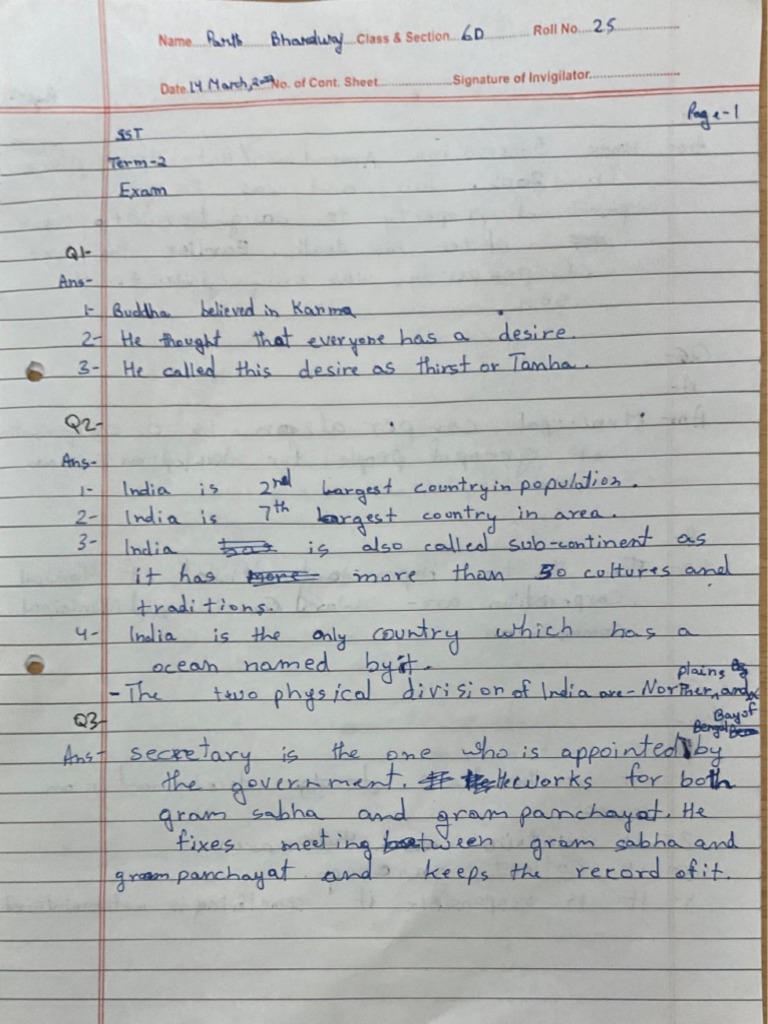 Name Parth Bhardwaj Class & Section 6D Roll No. 25
Date 14 March, No. of Cont. Sheet Signature of Invigilator
Page-1
SST
Term-2
Exam
Q1-
Ans-
1- Buddha believed in Karma
2- He thought that everyone has a desire.
3- He called this desire as thirst or Tamha.
Q2-
Ans-
1- India is 2nd largest country in population.
2- India is 7th largest country in area.
3- India is also called sub-continent as
it has more than 50 cultures and
traditions.
4- India is the only country which has a
ocean named by it.
- The two physical division of India are - Norther plains and
Bay of
Bengal
Q3-
Ans- secretary is the one who is appointed by
the government. He works for both
gram sabha and gram panchayat. He
fixes meeting between gram sabha and
gram panchayat and keeps the record of it.